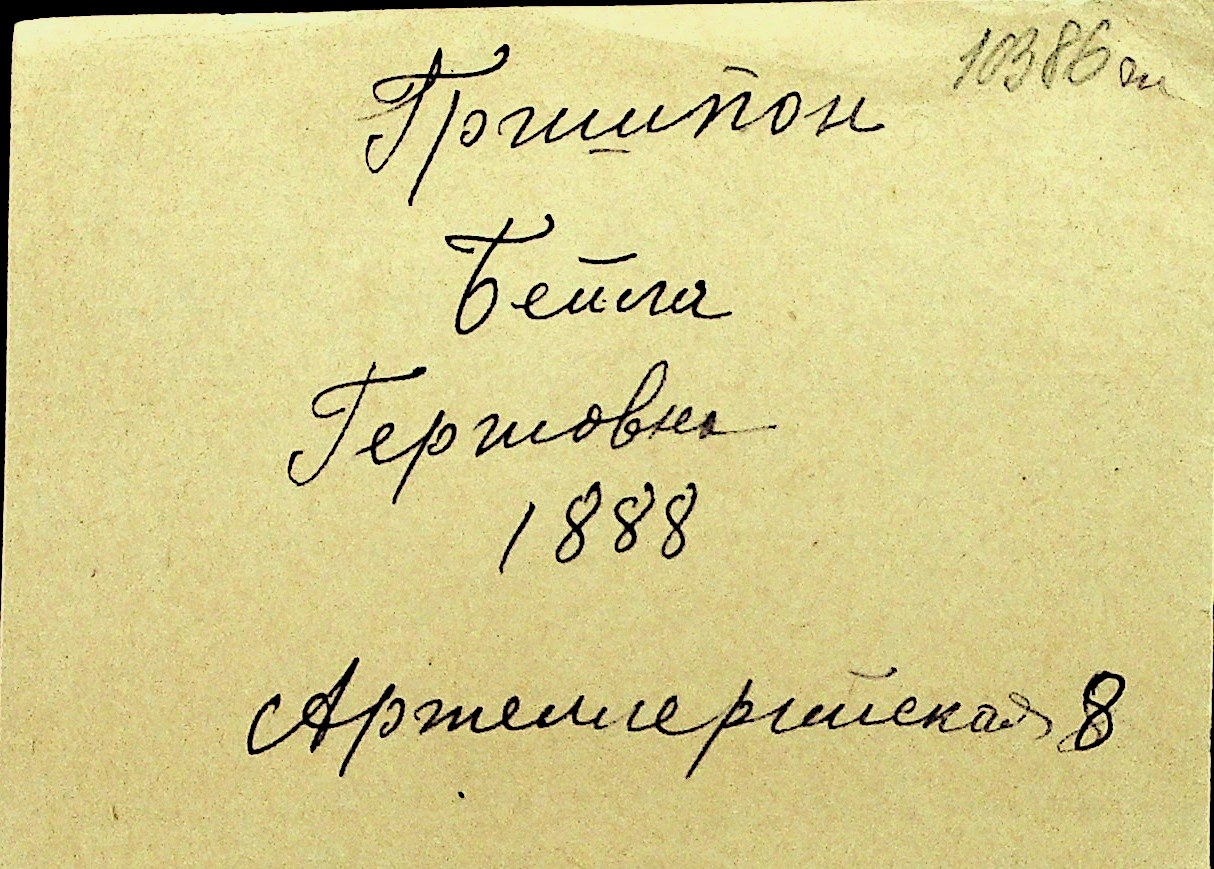 10386
Гришпон
Бейла
Гершовна
1888
Артеллерийская 8